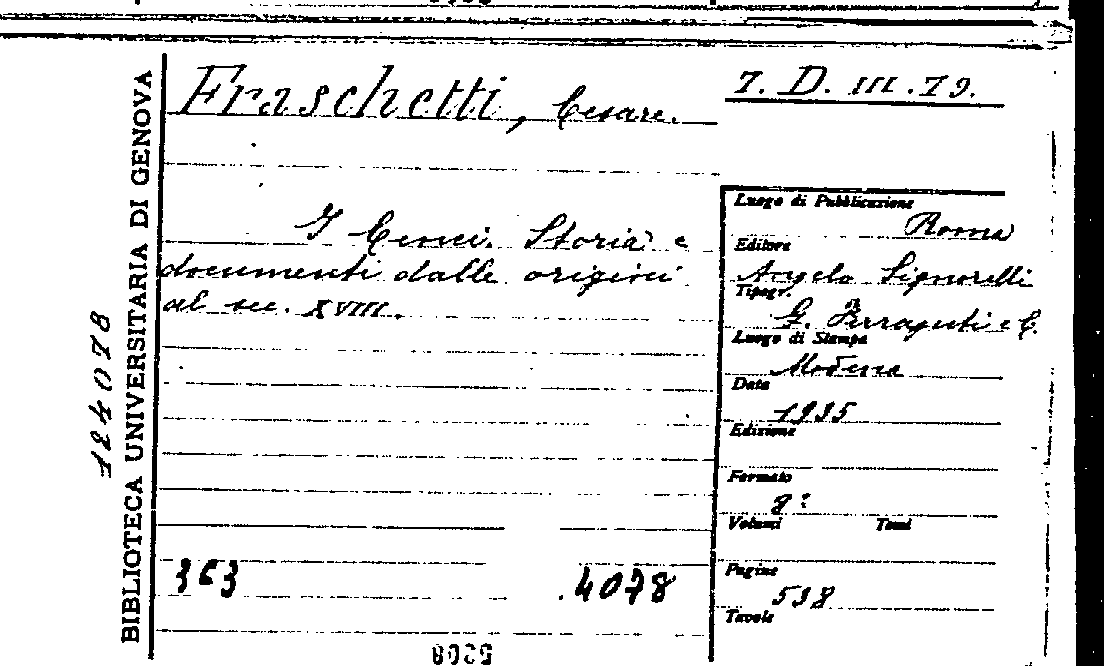 Fraschetti, Cesare.
7. D. III. 79.
I Cenci. Storia e
documenti dalle origini
al sec. XVIII.
Luogo di Pubblicazione
Roma
Editore
Angelo Signorelli
Tipogr.
G. Ferraguti e C.
Luogo di Stampa
Modena
Data
1935
Edizione
Formato
8°
Volumi Tomi
Pagine
538
Tavole
363 4078
5208
BIBLIOTECA UNIVERSITARIA DI GENOVA
124078